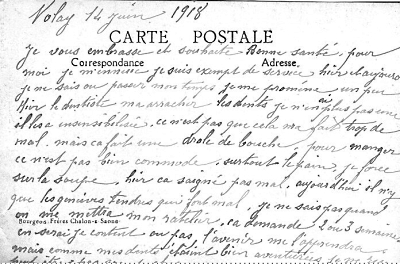 Volay 14 juin 1918
CARTE POSTALE
Je vous embrasse et souhaite Bonne santé, pour
Correspondance Adresse
moi je m'ennuie je suis exempt de service hier et aujour
je ne sais ou passer mon temps, je me promène un peu
hier le dentiste m'a arracher les dents je n'en ai plus pas une
il les a insensibilisé. ce n'est pas que cela m'a fait trop de
mal, mais ca fait une drole de bouche, pour manger
ce n'est pas bien commode, surtout le pain, je force
sur la soupe, hier ca saigné pas mal, aujourd'hui il n'y
que les gencives tendres qui font mal, je ne sais pas quand
on me mettra mon ratelier, ca demande 2 ou 3 semaines
Bourgeois Frères Chalon-s-Saone
en serai je content ou pas, l'avenir me l'apprendra
mais comme mes dents étaient bien